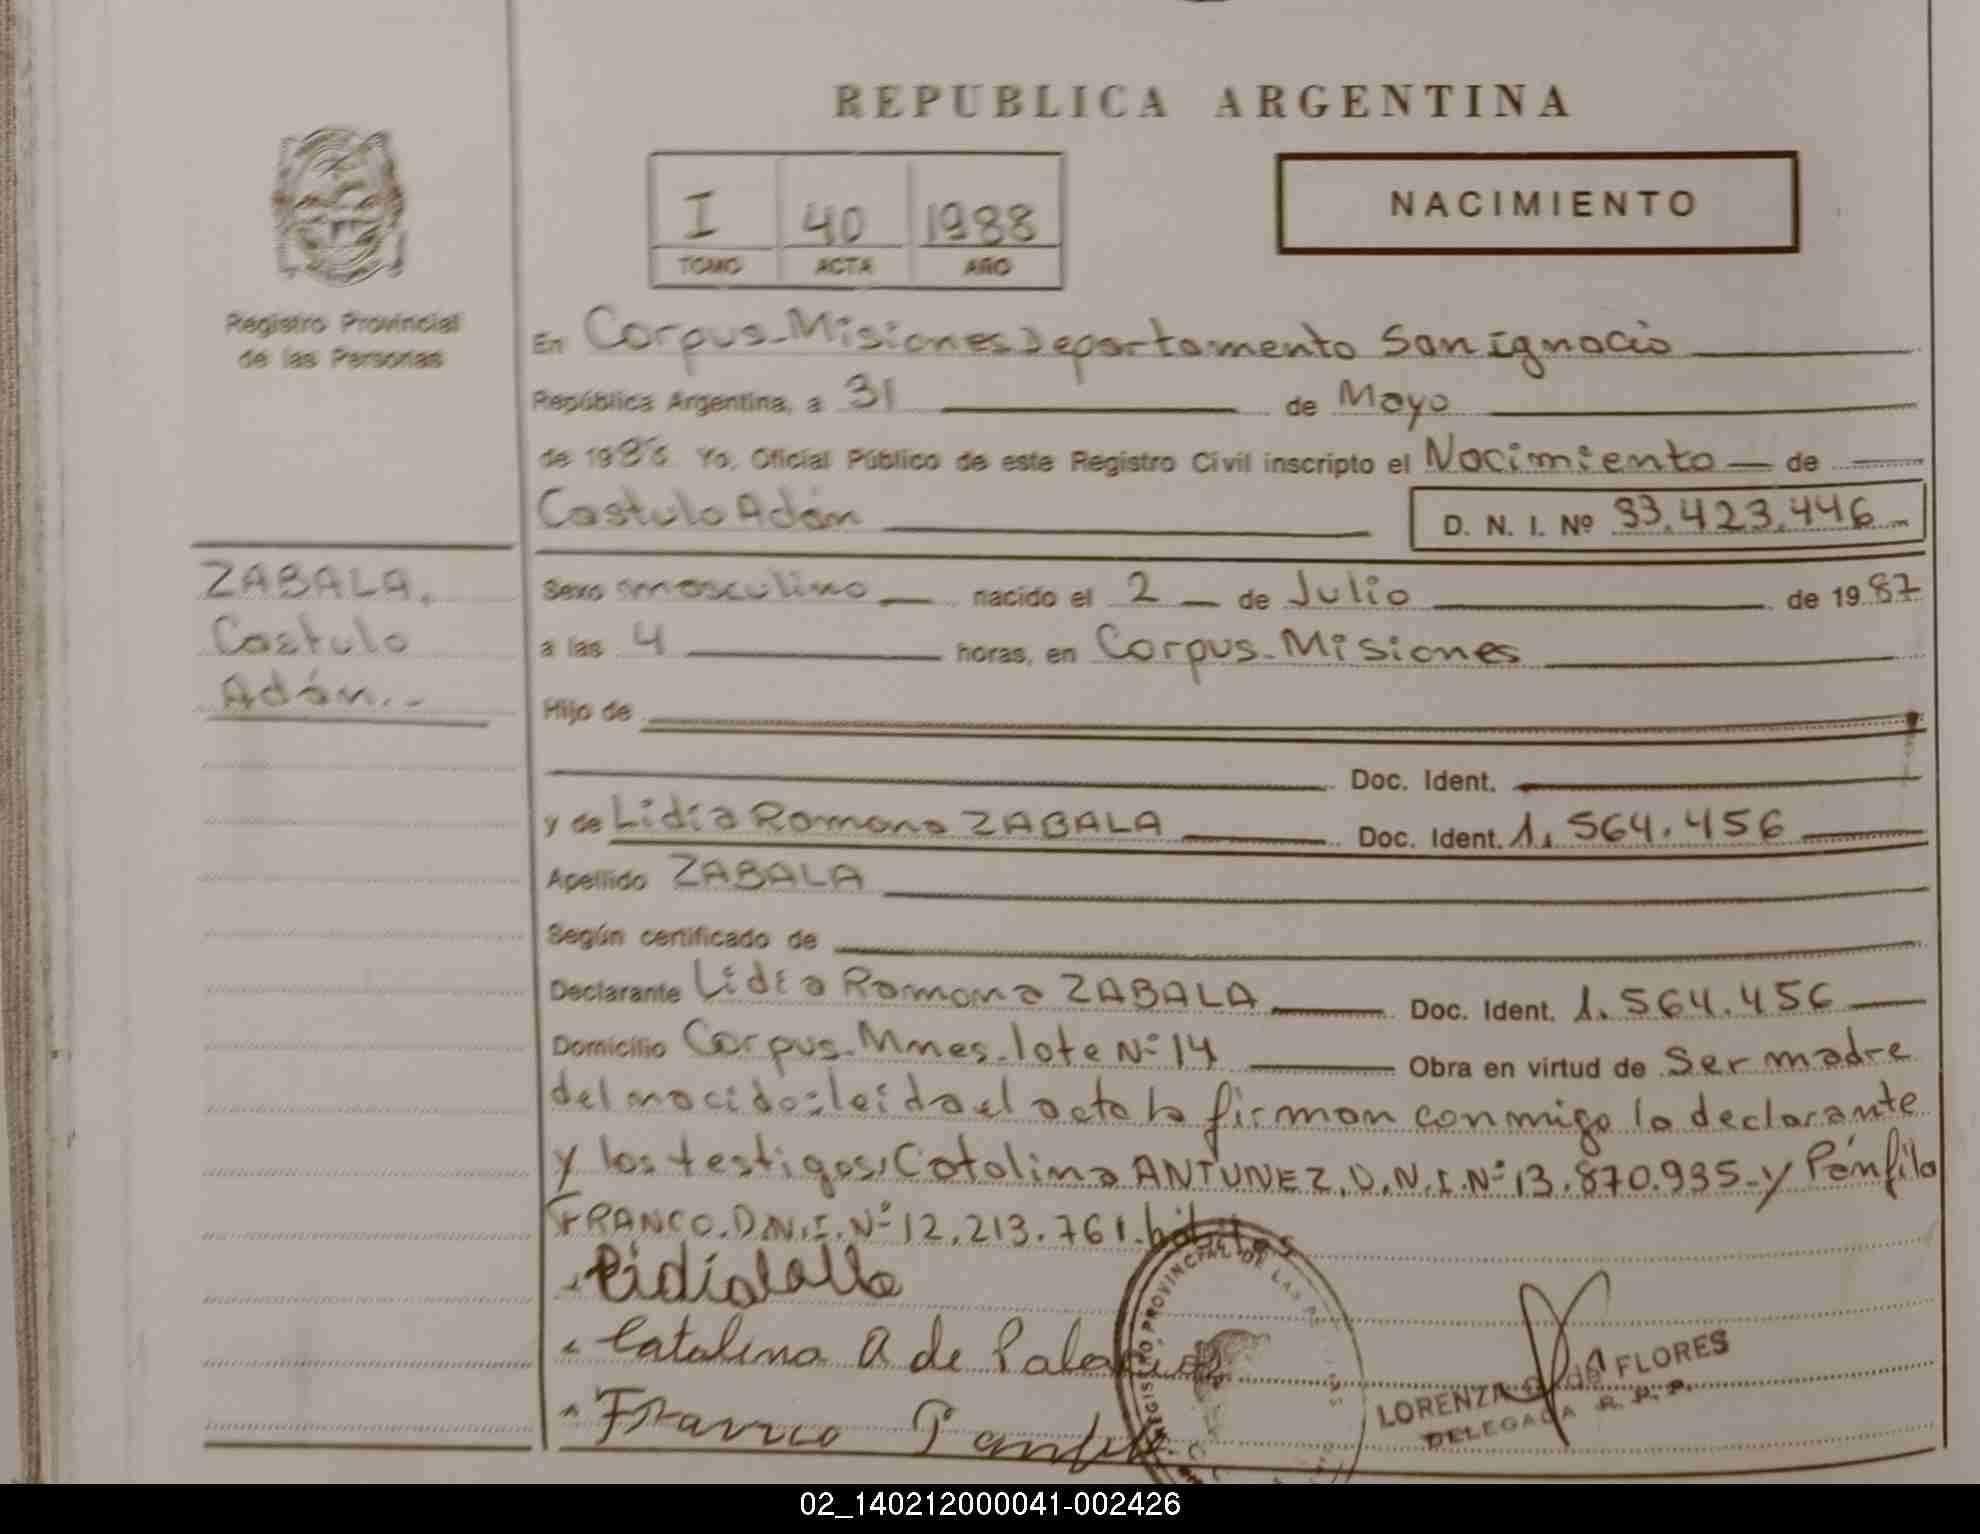 REPUBLICA ARGENTINA
I 40 1988
TOMO ACTA AÑO
NACIMIENTO
Registro Provincial
de las Personas
En Corpus-Misiones Departamento San Ignacio
República Argentina, a 31 de Mayo
de 198 Yo, Oficial Público de este Registro Civil inscripto el Nacimiento de
Castulo Adán D. N. I. Nº 33.423.446
ZABALA,
Castulo
Adán.-
Sexo masculino nacido el 2 de Julio de 1987
a las 4 horas, en Corpus-Misiones
Hijo de
Doc. Ident.
y de Lidia Romona ZABALA Doc. Ident. 1.564.456
Apellido ZABALA
Según certificado de
Declarante Lidia Romona ZABALA Doc. Ident. 1.564.456
Domicilio Corpus-Mnes-lote Nº 14 Obra en virtud de Ser madre
del nacido: leida el acta la firman conmigo la declarante
y los testigos, Catalina ANTUNEZ. D.N.I. Nº 13.870.935- y Pánfilo
FRANCO. D.N.I. Nº 12.213.761.
Catalina A de
Franco
REGISTRO PROVINCIAL DE LAS
LORENZA de FLORES
DELEGADA R. P. P.
02_140212000041-002426